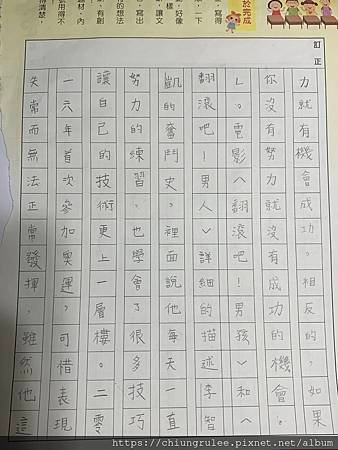 於完成
寫得
一下
訂正
力就有機會成功。相反的,如果
你沒有努力就沒有成功的機會。
」。電影〈翻滾吧!男孩〉和〈
翻滾吧!男人〉詳細的描述李智
凱的奮鬥史,裡面說他每天一直
努力的練習,也學會了很多技巧
讓自己的技術更上一層樓。二零
一六年首次參加奧運,可惜表現
失常而無法正常發揮,雖然他這
https://chiungrulee.pixnet.net/album